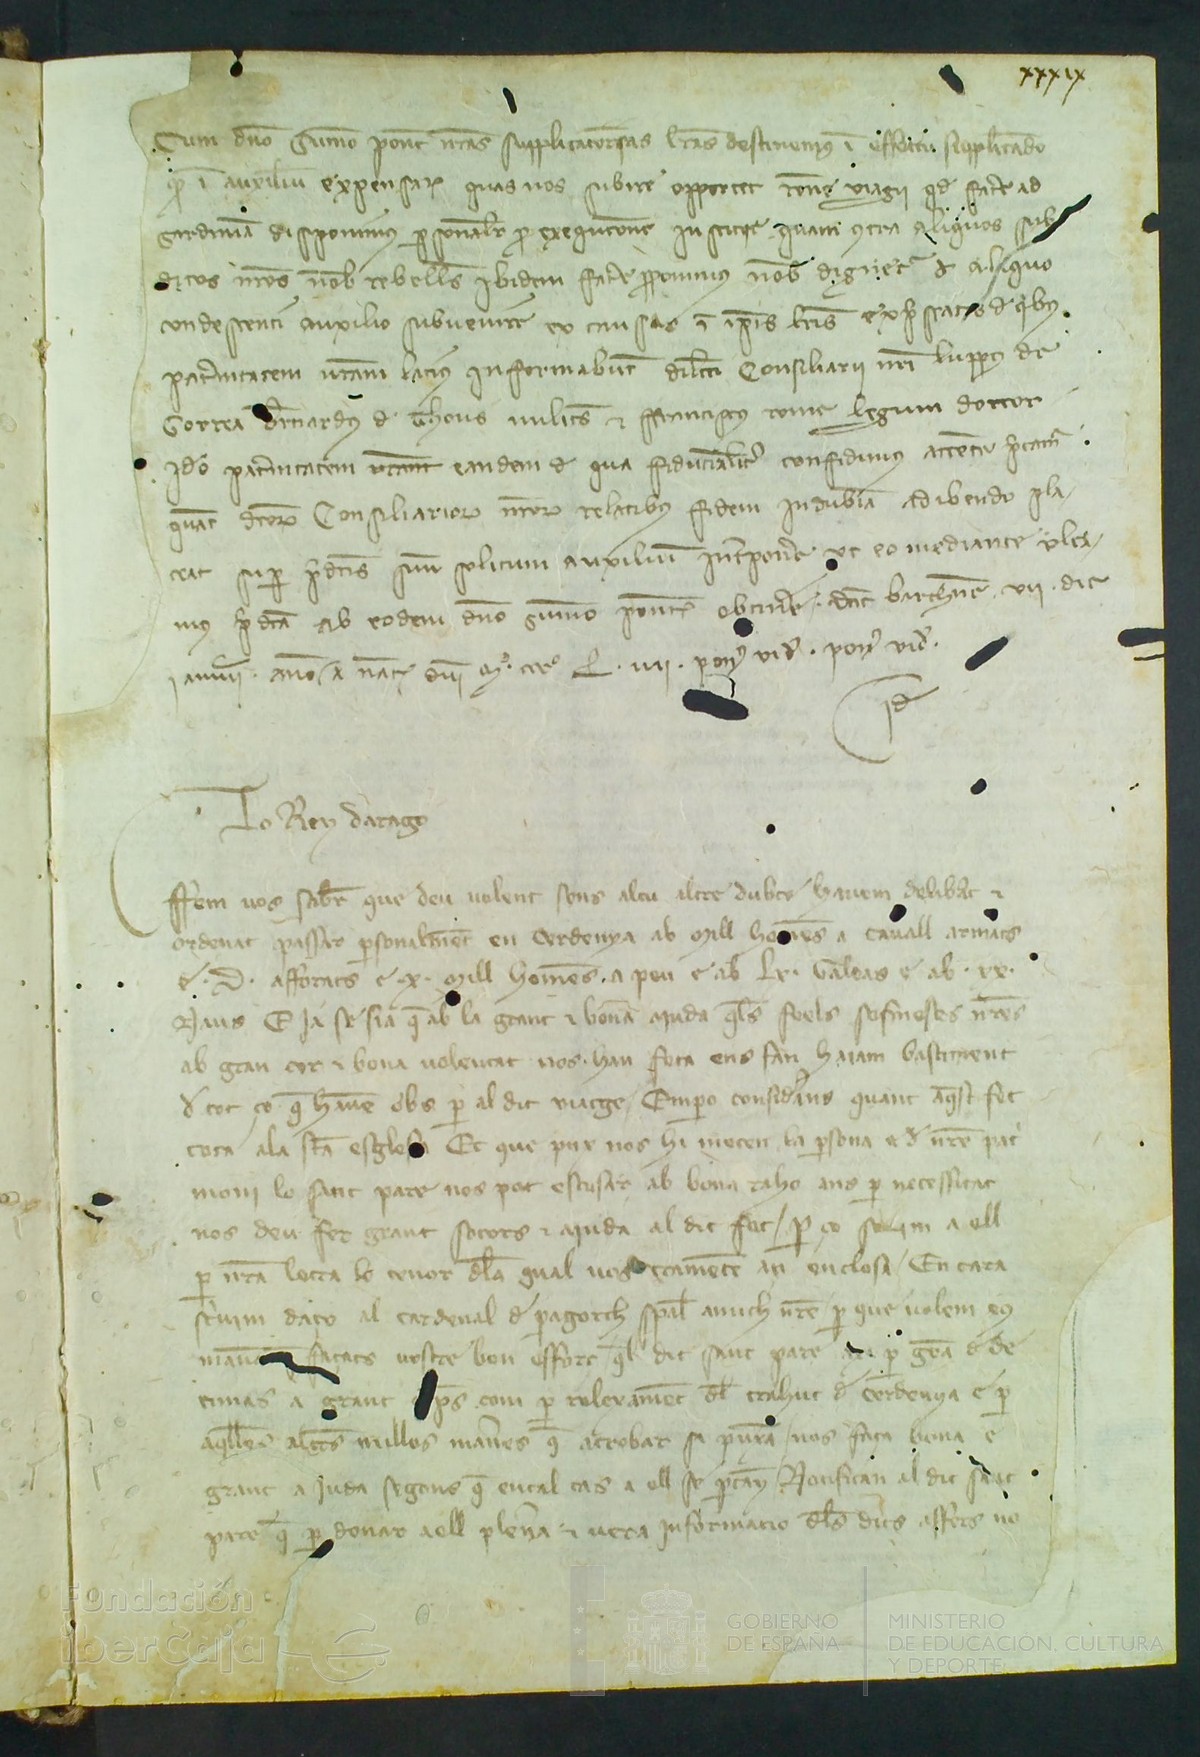 xxxix
Cum dno Sumo pont nras supplicatorias lras destinemus i effectu supplicado
qd i auxiliu expensar quas nos subire opportet rone viagii qd facere ad
Sardinia disponimus psonalr p exequcone iusticie quam contra aliquos sub
ditos nros nob rebelles ibidem facere pponimus nob dignet aliquo
condescenti auxilio subvenire ex causis i ipis lris expssatis d qbus
patnitatem vram lacius informabut dilcti Consiliarii nri luppus de
Gorrea Bernardus d Thous milites & ffranciscus rome legum doctor
Ido patnitatem vram eandem d qua fiducialiter confidimus attente pcam
quat dcor Consiliarior nror relatibus fidem indubia adibendo pla/
ceat sup pdcis suu solitum auxiliu intponere ut eo mediante valea/
mus pdca ab eodem dno Sumo pont obtinere. Dat barchne vii die
ianuii. ano a nat dni Mo ccco L. iiii. petrus vid. petrus vid.
Lo Rey darago
ffem vos saber que deu volent sens alcu altre dubte havem delibat &
ordenat passar psonalmet en Cerdenya ab Mill homes a cavall armats
e. D. afforrats e. x. Mill homes. a peu e ab Lx. Galeas e ab. xx.
Naus E ja se sia q ab la grant & bona ajuda qls feels sosmeses nres
ab gran cor & bona volentat nos han feta ens fan hajam bastiment
d tot ço q have obs p al dit viatge / Empo considans quant aqst fet
toca ala sta esglesia Et que pux nos hi metem la psona e d nre pat
moni lo sant pare nos pot escusar ab bona raho ans p necessitat
nos deu fer grant socors & ajuda al dit fet / p ço scrivim a ell
p nra letra la tenor dla qual vos trametem an enclosa / En cara
scrivim daço al cardenal d pagorch spal amich nre p que volem eus
manam façats vostre bon esffort ql dit sant pare axi p gra d de
cimas a grant tps com p relevamet dl trahut d Cerdenya e p
aqlles altres millors maneres q atrobar se pura / nos faça bona e
grant ajuda segons q en tal cas a ell se ptany Notifican al dit sant
pare q p donar a ell plena & vera informacio dls dits affers no
Fundación
iberCaja
GOBIERNO
DE ESPAÑA
MINISTERIO
DE EDUCACIÓN, CULTURA
Y DEPORTE